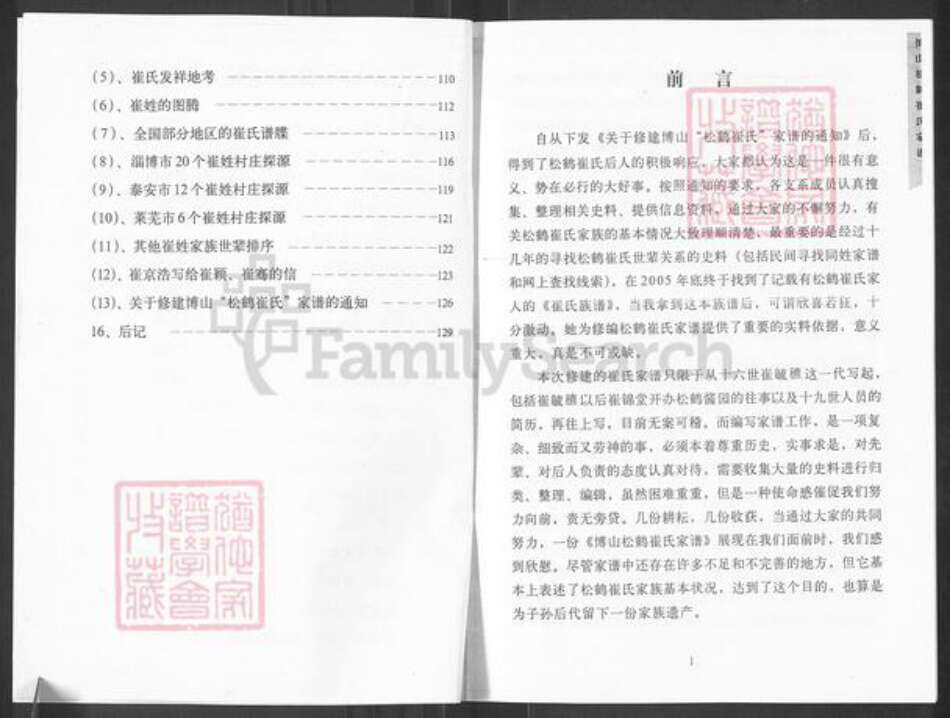 (5)、崔氏发祥地考 110
(6)、崔姓的图腾 112
(7)、全国部分地区的崔氏谱牒 113
(8)、淄博市20个崔姓村庄探源 116
(9)、泰安市12个崔姓村庄探源 119
(10)、莱芜市6个崔姓村庄探源 121
(11)、其他崔姓家族世辈排序 122
(12)、崔京浩写给崔颖、崔骞的信 123
(13)、关于修建博山“松鹤崔氏”家谱的通知 126
16、后记 129
FamilySearch
猶他家
譜學會
收藏
前言
自从下发《关于修建博山“松鹤崔氏”家谱的通知》后，
得到了松鹤崔氏后人的积极响应。大家都认为这是一件很有意
义、势在必行的大好事。按照通知的要求，各支系成员认真搜
集、整理相关史料、提供信息资料。通过大家的不懈努力，有
关松鹤崔氏家族的基本情况大致理顺清楚、最重要的是经过十
几年的寻找松鹤崔氏世辈关系的史料（包括民间寻找同姓家谱
和网上查找线索），在2005年底终于找到了记载有松鹤崔氏家
人的《崔氏族谱》，当我拿到这本族谱后，可谓欣喜若狂，十
分激动。她为修编松鹤崔氏家谱提供了重要的实料依据，意义
重大，真是不可或缺。
本次修建的崔氏家谱只限于从十六世崔毓樵这一代写起，
包括崔毓樵以后崔锦堂开办松鹤酱园的往事以及十九世人员的
简历，再往上写，目前无案可稽。而编写家谱工作，是一项复
杂、细致而又劳神的事，必须本着尊重历史，实事求是，对先
辈、对后人负责的态度认真对待，需要收集大量的史料进行归
类、整理、编辑，虽然困难重重，但是一种使命感催促我们努
力向前，责无旁贷。几份耕耘，几份收获，当通过大家的共同
努力，一份《博山松鹤崔氏家谱》展现在我们面前时，我们感
到欣慰。尽管家谱中还存在许多不足和不完善的地方，但它基
本上表述了松鹤崔氏家族基本状况，达到了这个目的，也算是
为子孙后代留下一份家族遗产。
猶他家
譜學會
收藏
1